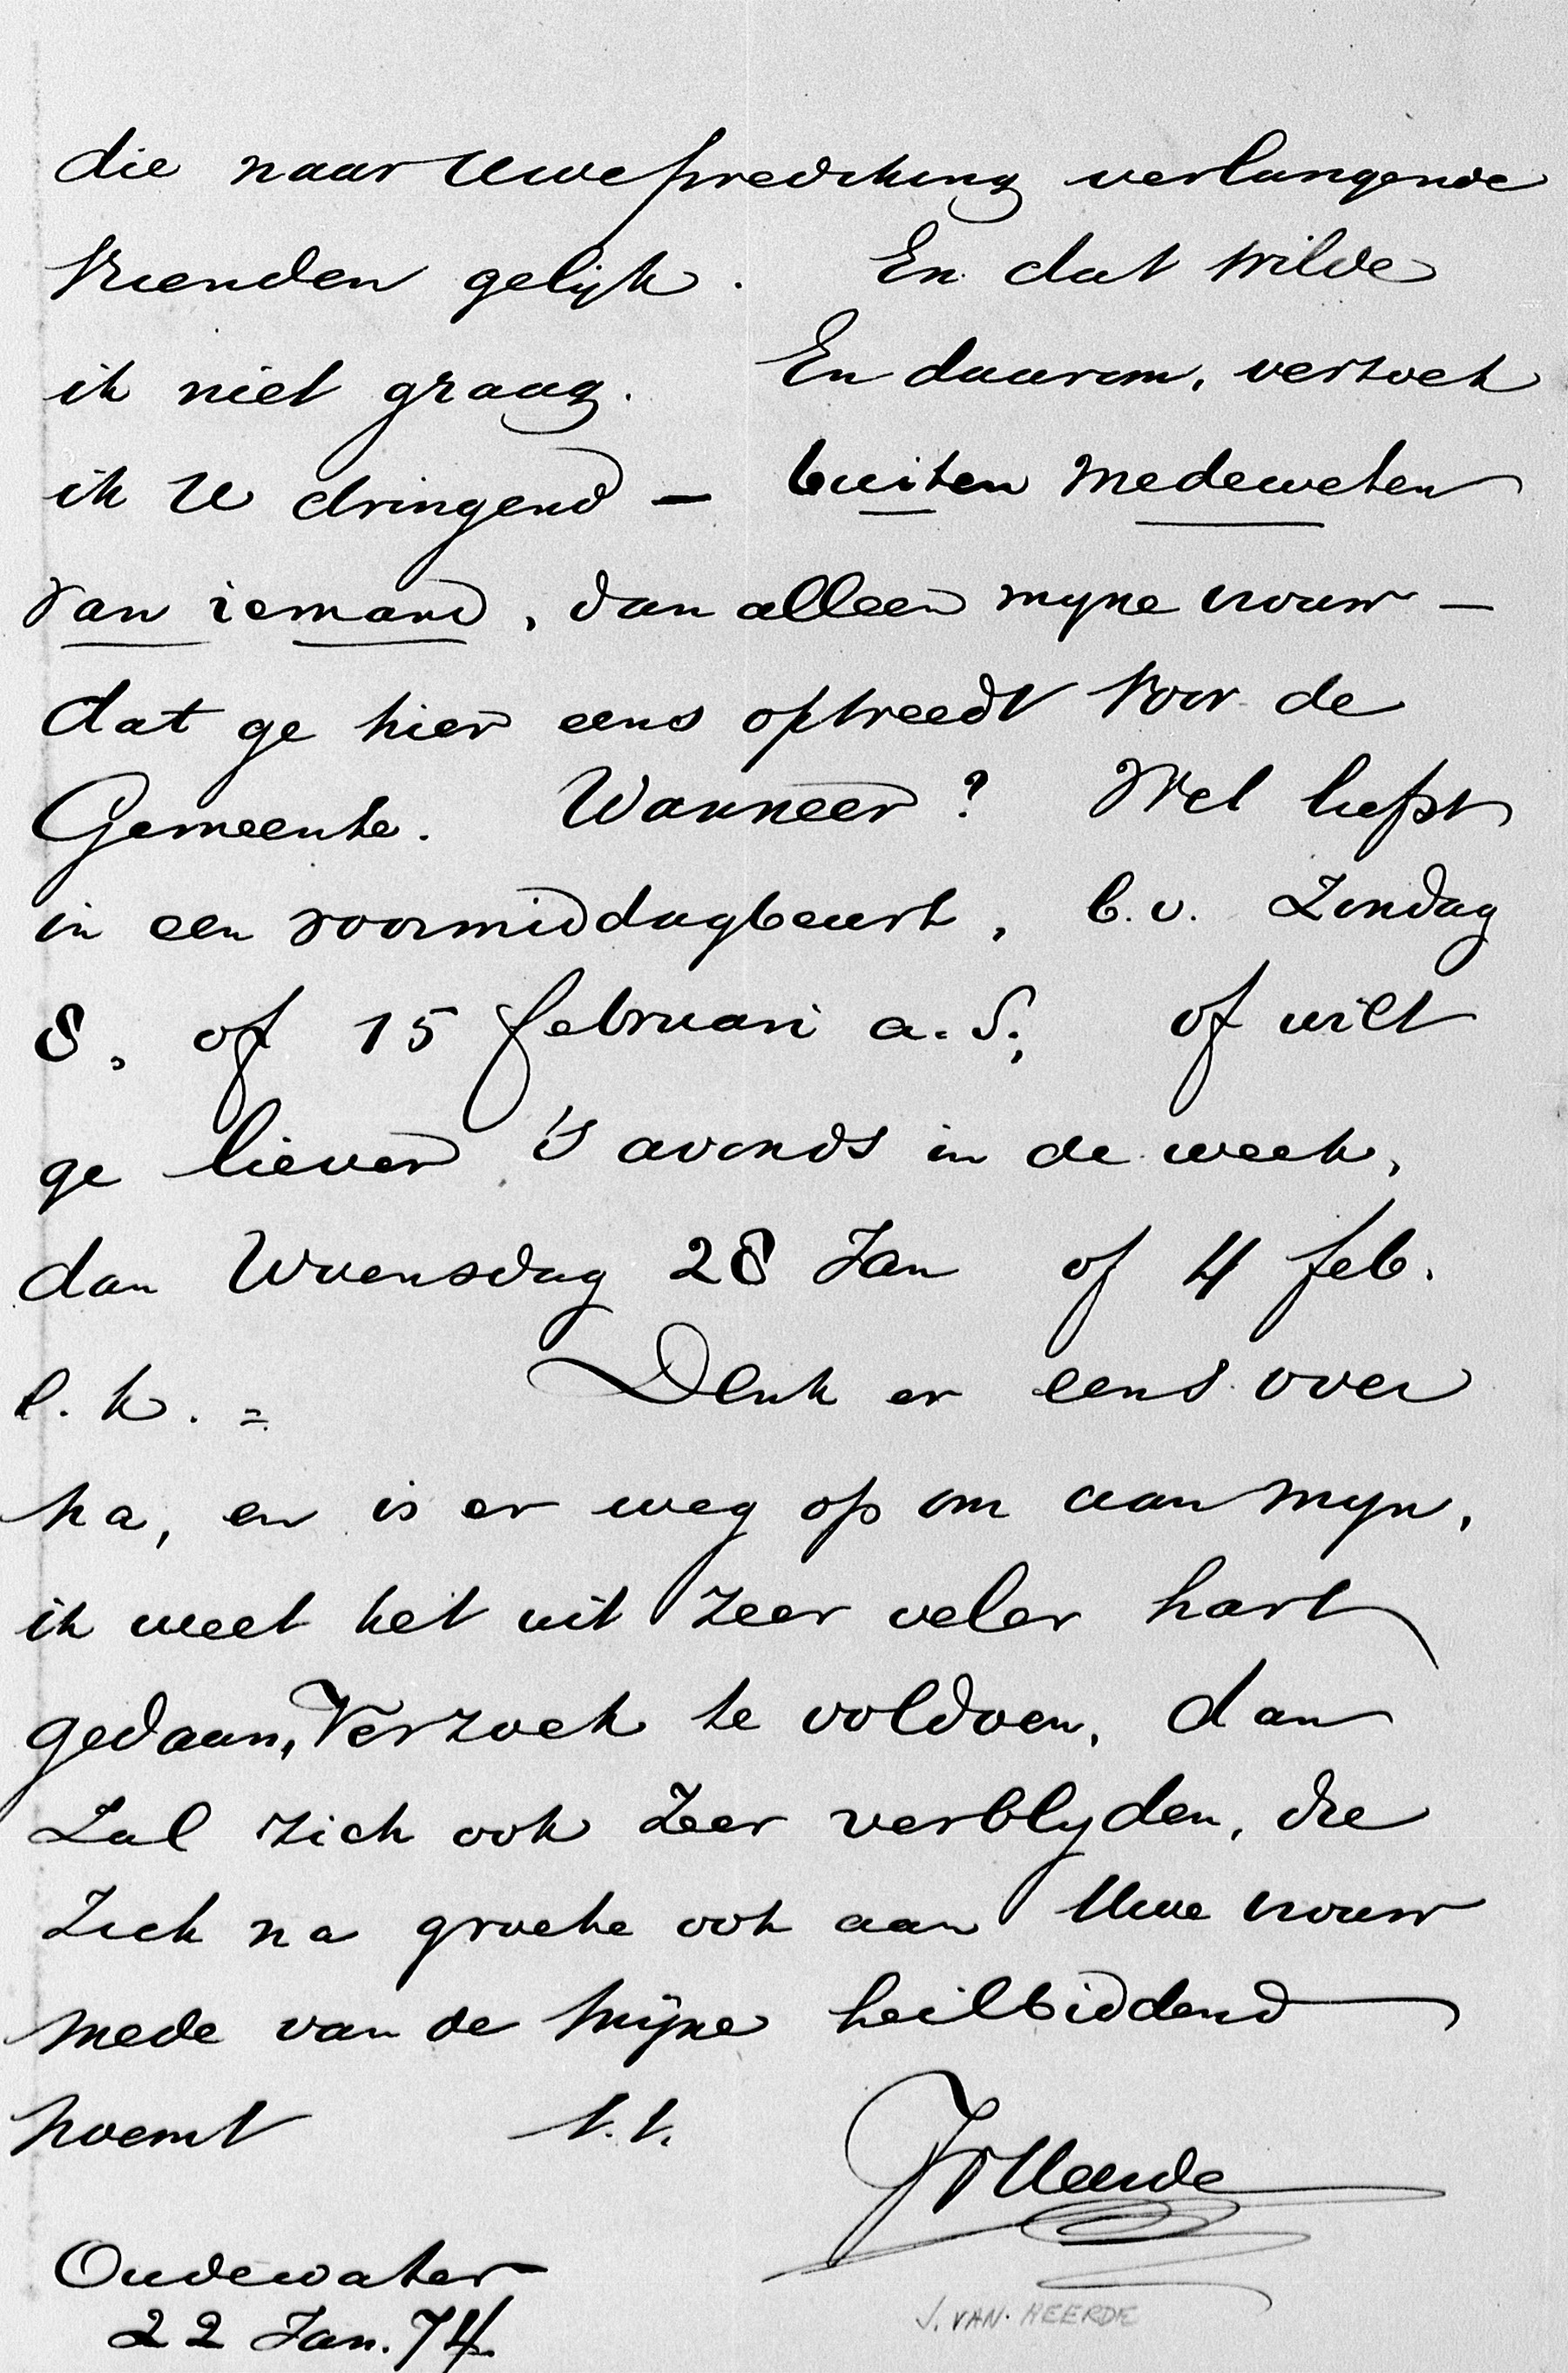 die naar Uwe prediking verlangende
Vrienden gelijk. En dat wilde
ik niet graag. En daarom, verzoek
ik U dringend – buiten medeweten
van iemand, dan alleen myne vrouw –
dat ge hier eens optreedt voor de
Gemeente. Wanneer? Wel liefst
in een voormiddagbeurt, b.v. Zondag
8, of 15 februari a.s; of wilt
ge liever 's avonds in de week,
dan Woensdag 28 Jan of 4 feb.
e.k. = Denk er eens over
na, en is er weg op om aan myn,
ik weet het uit zeer veler hart
gedaan, Verzoek te voldoen, dan
Zal zich ook Zeer verblyden, die
Zich na groete ook aan Uwe vrouw
mede van de mijne heilbiddend
noemt t.t.
JvHeerde
Oudewater
22 Jan. 74
J. VAN HEERDE